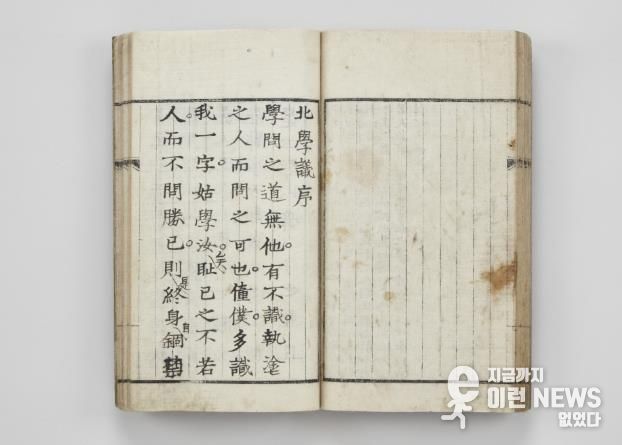 北學議序
學問之道無他。有不識。執塗
之人而問之可也。僮僕。多識
我一字。姑學汝。矣恥己之不若
人。而不問勝己。則是終身自錮
지금까지
이런 NEWS
없었다